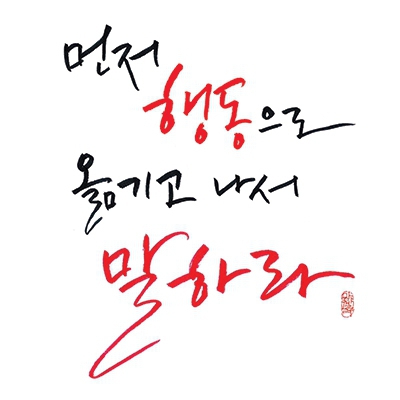 먼저
행동으로
옮기고 나서
말하라